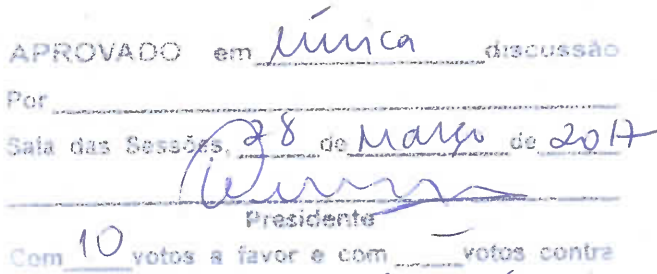 APROVADO em única discussão
Por
Sala das Sessões, 28 de Março de 2017
Presidente
Com 10 votos a favor e com — votos contra